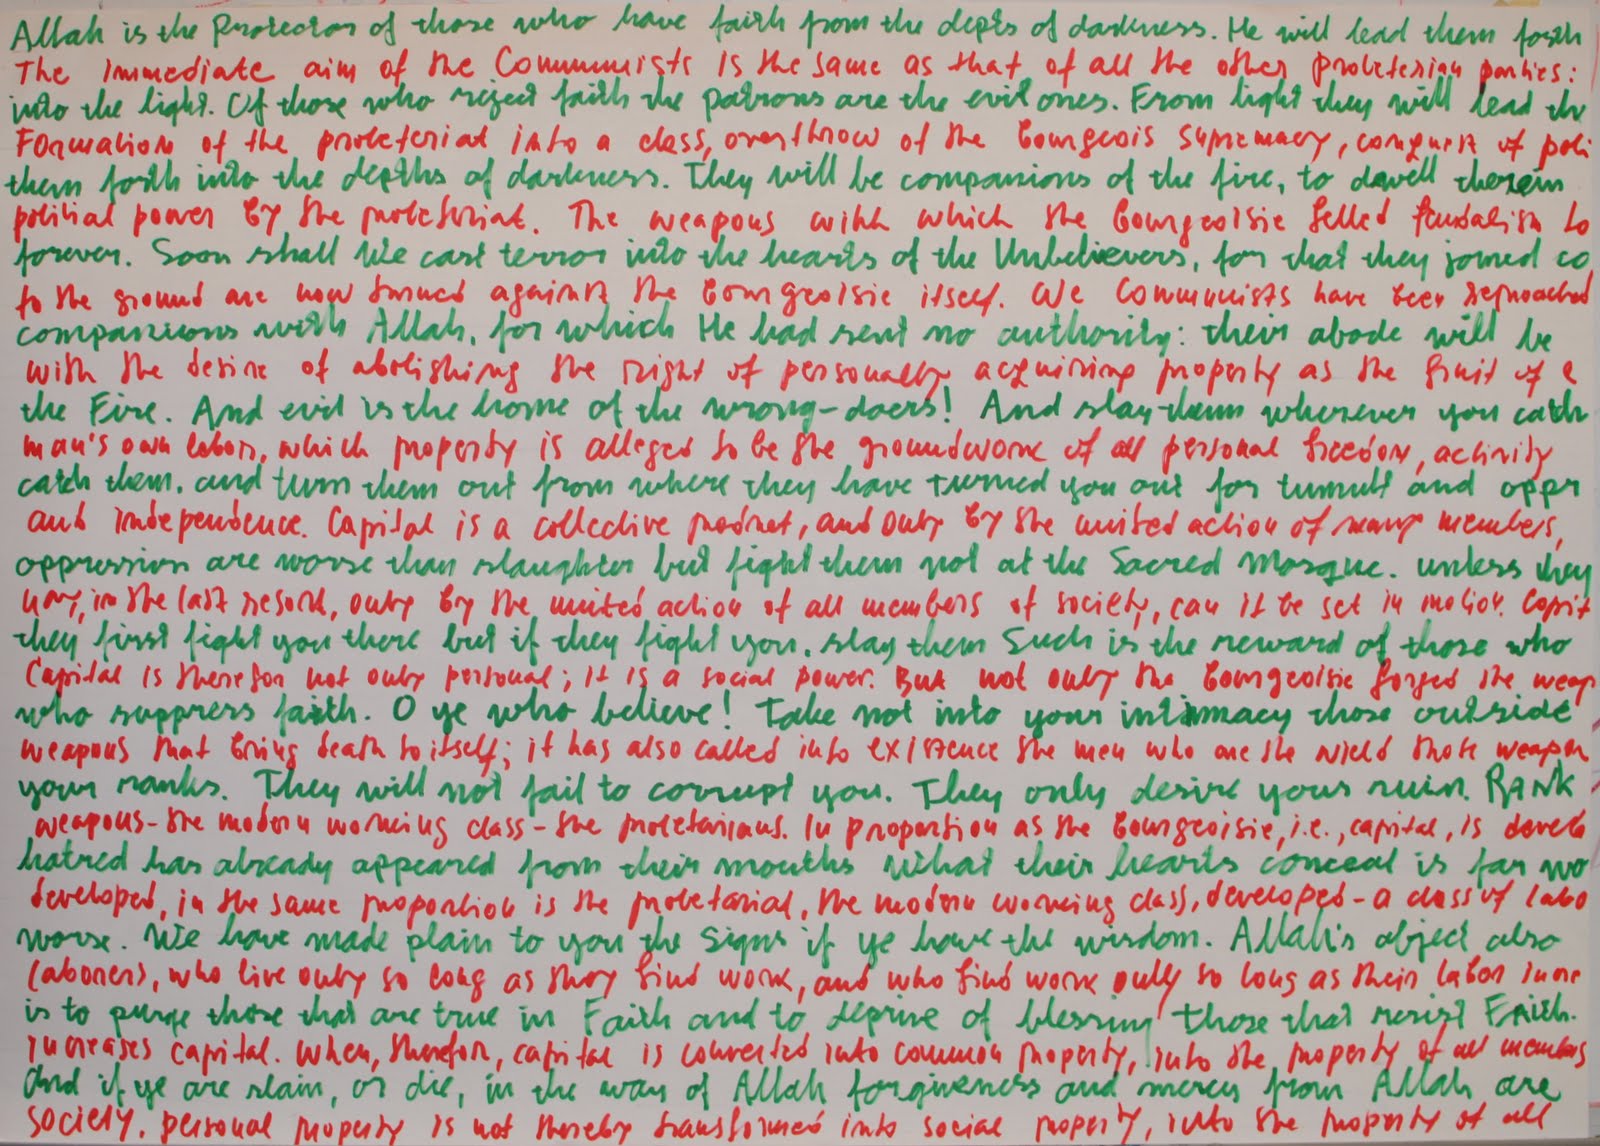 Allah is the Protector of those who have faith from the depts of darkness. He will lead them forth
The immediate aim of the Communists is the same as that of all the other proleterian parties:
into the light. Of those who reject faith the patrons are the evil ones. From light they will lead the
Formation of the proleterial into a class, overthrow of the bourgeois supremacy, conquest of poli
them forth into the depths of darkness. They will be companions of the fire, to dwell therein
political power by the proletariat. The weapons with which the bourgeoisie felled feudalism to
forever. Soon shall We cast terror into the hearts of the Unbelievers, for that they joined co
to the ground are now turned against the bourgeoisie itself. We Communists have been reproached
companions with Allah, for which He had sent no authority: their abode will be
with the desire of abolishing the right of personally acquiring property as the fruit of a
the Fire. And evil is the home of the wrong-doers! And slay them wherever you catch
man's own labor, which property is alleged to be the groundwork of all personal freedom, activity
catch them. and turn them out from where they have turned you out for tumult and oppr
and independence. Capital is a collective product, and only by the united action of many members,
oppression are worse than slaughter but fight them not at the Sacred Mosque. unless they
nay, in the last resort, only by the united action of all members of society, can it be set in motion. Capit
they first fight you there but if they fight you. slay them Such is the reward of those who
Capital is therefor not only personal; it is a social power. But not only the bourgeoisie forged the weap
who suppress faith. O ye who believe! Take not into your intimmacy those outside
weapons that bring death to itself; it has also called into existence the men who are the wield those weapon
your ranks. They will not fail to corrupt you. They only desire your ruin. RANK
weapons-the modern working class-the proletarians. In proportion as the bourgeoisie, i.e., capital, is develo
hatred has already appeared from their mouths What their hearts conceal is far wo
developed, in the same proportion is the proletarial, the modern working class, developed-a class of labo
worse. We have made plain to you the Signs if ye have the wisdom. Allah's object also
laborers, who live only so long as they find work, and who find work only so long as their labor incre
is to purge those that are true in Faith and to deprive of blessing those that resist Faith.
increases capital. When, therefor, capital is converted into common property, into the property of all members
And if ye are slain, or die, in the way of Allah forgiveness and mercy from Allah are
society. personal property is not thereby transformed into social property, into the property of all